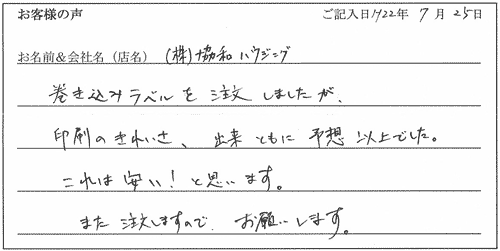 お客様の声 ご記入日 H22年 7月 25日
お名前＆会社名（店名） (株)協和ハウジング
巻き込みラベルを注文しましたが、
印刷のきれいさ、出来ともに予想以上でした。
これは安い！と思います。
また注文しますので、お願いします。